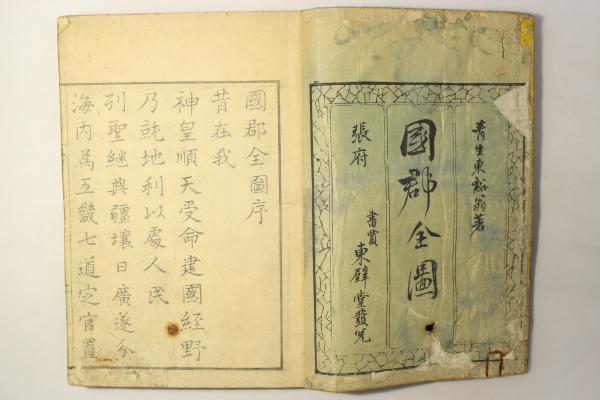 青生東谿翁著
國郡全圖
張府
書賈 東壁堂發兌
國郡全圖序
昔在我
神皇順天受命建國經野
乃就地利以處人民
列聖繼興疆壤日廣遂分
海內為五畿七道定官置